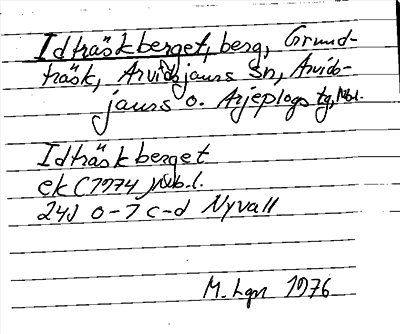 Idträskberget, berg, Grund-
träsk, Arvidsjaurs sn, Arvids-
jaurs o. Arjeplogs tg, Nbl.
Idträskberget
ek (1974
24J 0-7 c-d Nyvall
M. Lgn 1976